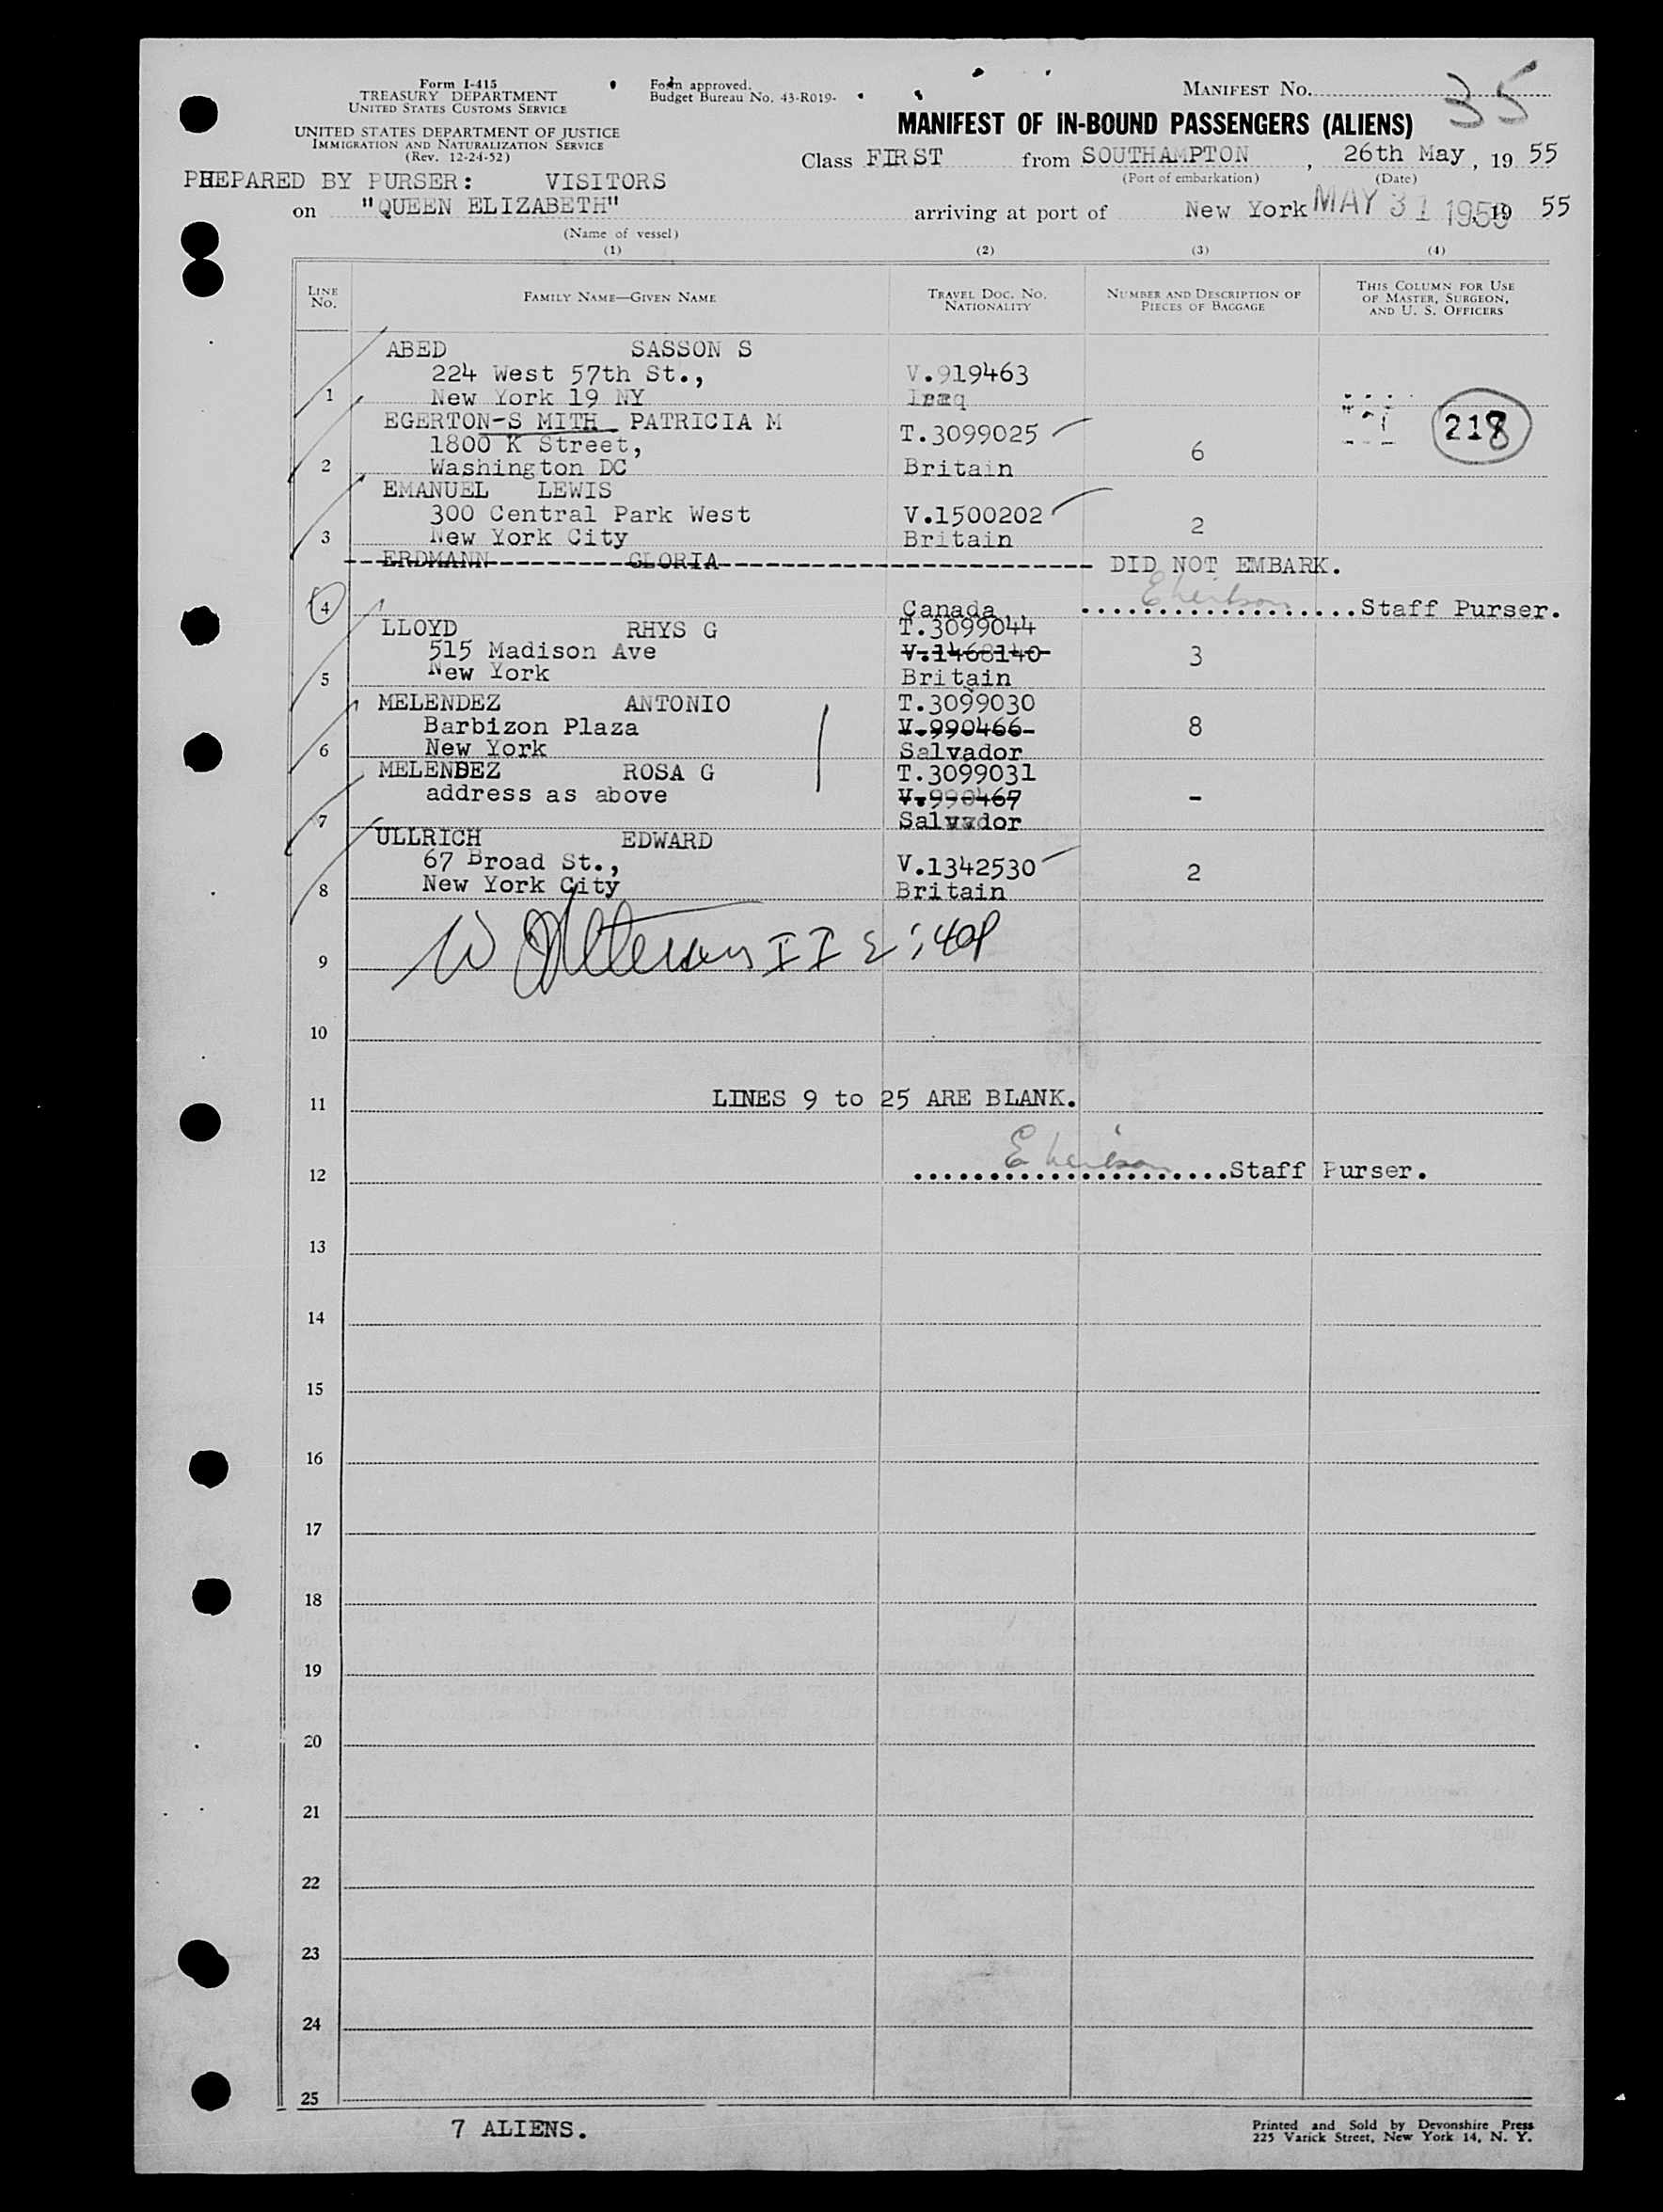 Form I-415
TREASURY DEPARTMENT
UNITED STATES CUSTOMS SERVICE
UNITED STATES DEPARTMENT OF JUSTICE
IMMIGRATION AND NATURALIZATION SERVICE
(Rev. 12-24-52)
Form approved.
Budget Bureau No. 43-R019-
MANIFEST NO. 35
MANIFEST OF IN-BOUND PASSENGERS (ALIENS)
Class FIRST from SOUTHAMPTON, 26th May, 19 55
(Port of embarkation) (Date)
PREPARED BY PURSER: VISITORS
on "QUEEN ELIZABETH" arriving at port of New York MAY 31 1955, 19 55
(Name of vessel)
(1) (2) (3) (4)
LINE NO. FAMILY NAME—GIVEN NAME TRAVEL DOC. NO. NATIONALITY NUMBER AND DESCRIPTION OF PIECES OF BAGGAGE THIS COLUMN FOR USE OF MASTER, SURGEON, AND U. S. OFFICERS
ABED SASSON S
224 West 57th St., V.919463
1 New York 19 NY Iraq
EGERTON-S MITH PATRICIA M 218
1800 K Street, T.3099025
2 Washington DC Britain 6
EMANUEL LEWIS
300 Central Park West V.1500202
3 New York City Britain 2
ERDMANN GLORIA DID NOT EMBARK.
4 Canada Staff Purser.
LLOYD RHYS G T.3099044
515 Madison Ave V.1468140 3
5 New York Britain
MELENDEZ ANTONIO T.3099030
Barbizon Plaza V.990466 8
6 New York Salvador
MELENDEZ ROSA G T.3099031
address as above V.990467 -
7 Salvador
ULLRICH EDWARD
67 Broad St., V.1342530 2
8 New York City Britain
9
10
11 LINES 9 to 25 ARE BLANK.
12 Staff Purser.
13
14
15
16
17
18
19
20
21
22
23
24
25
7 ALIENS.
Printed and Sold by Devonshire Press
225 Varick Street, New York 14, N. Y.